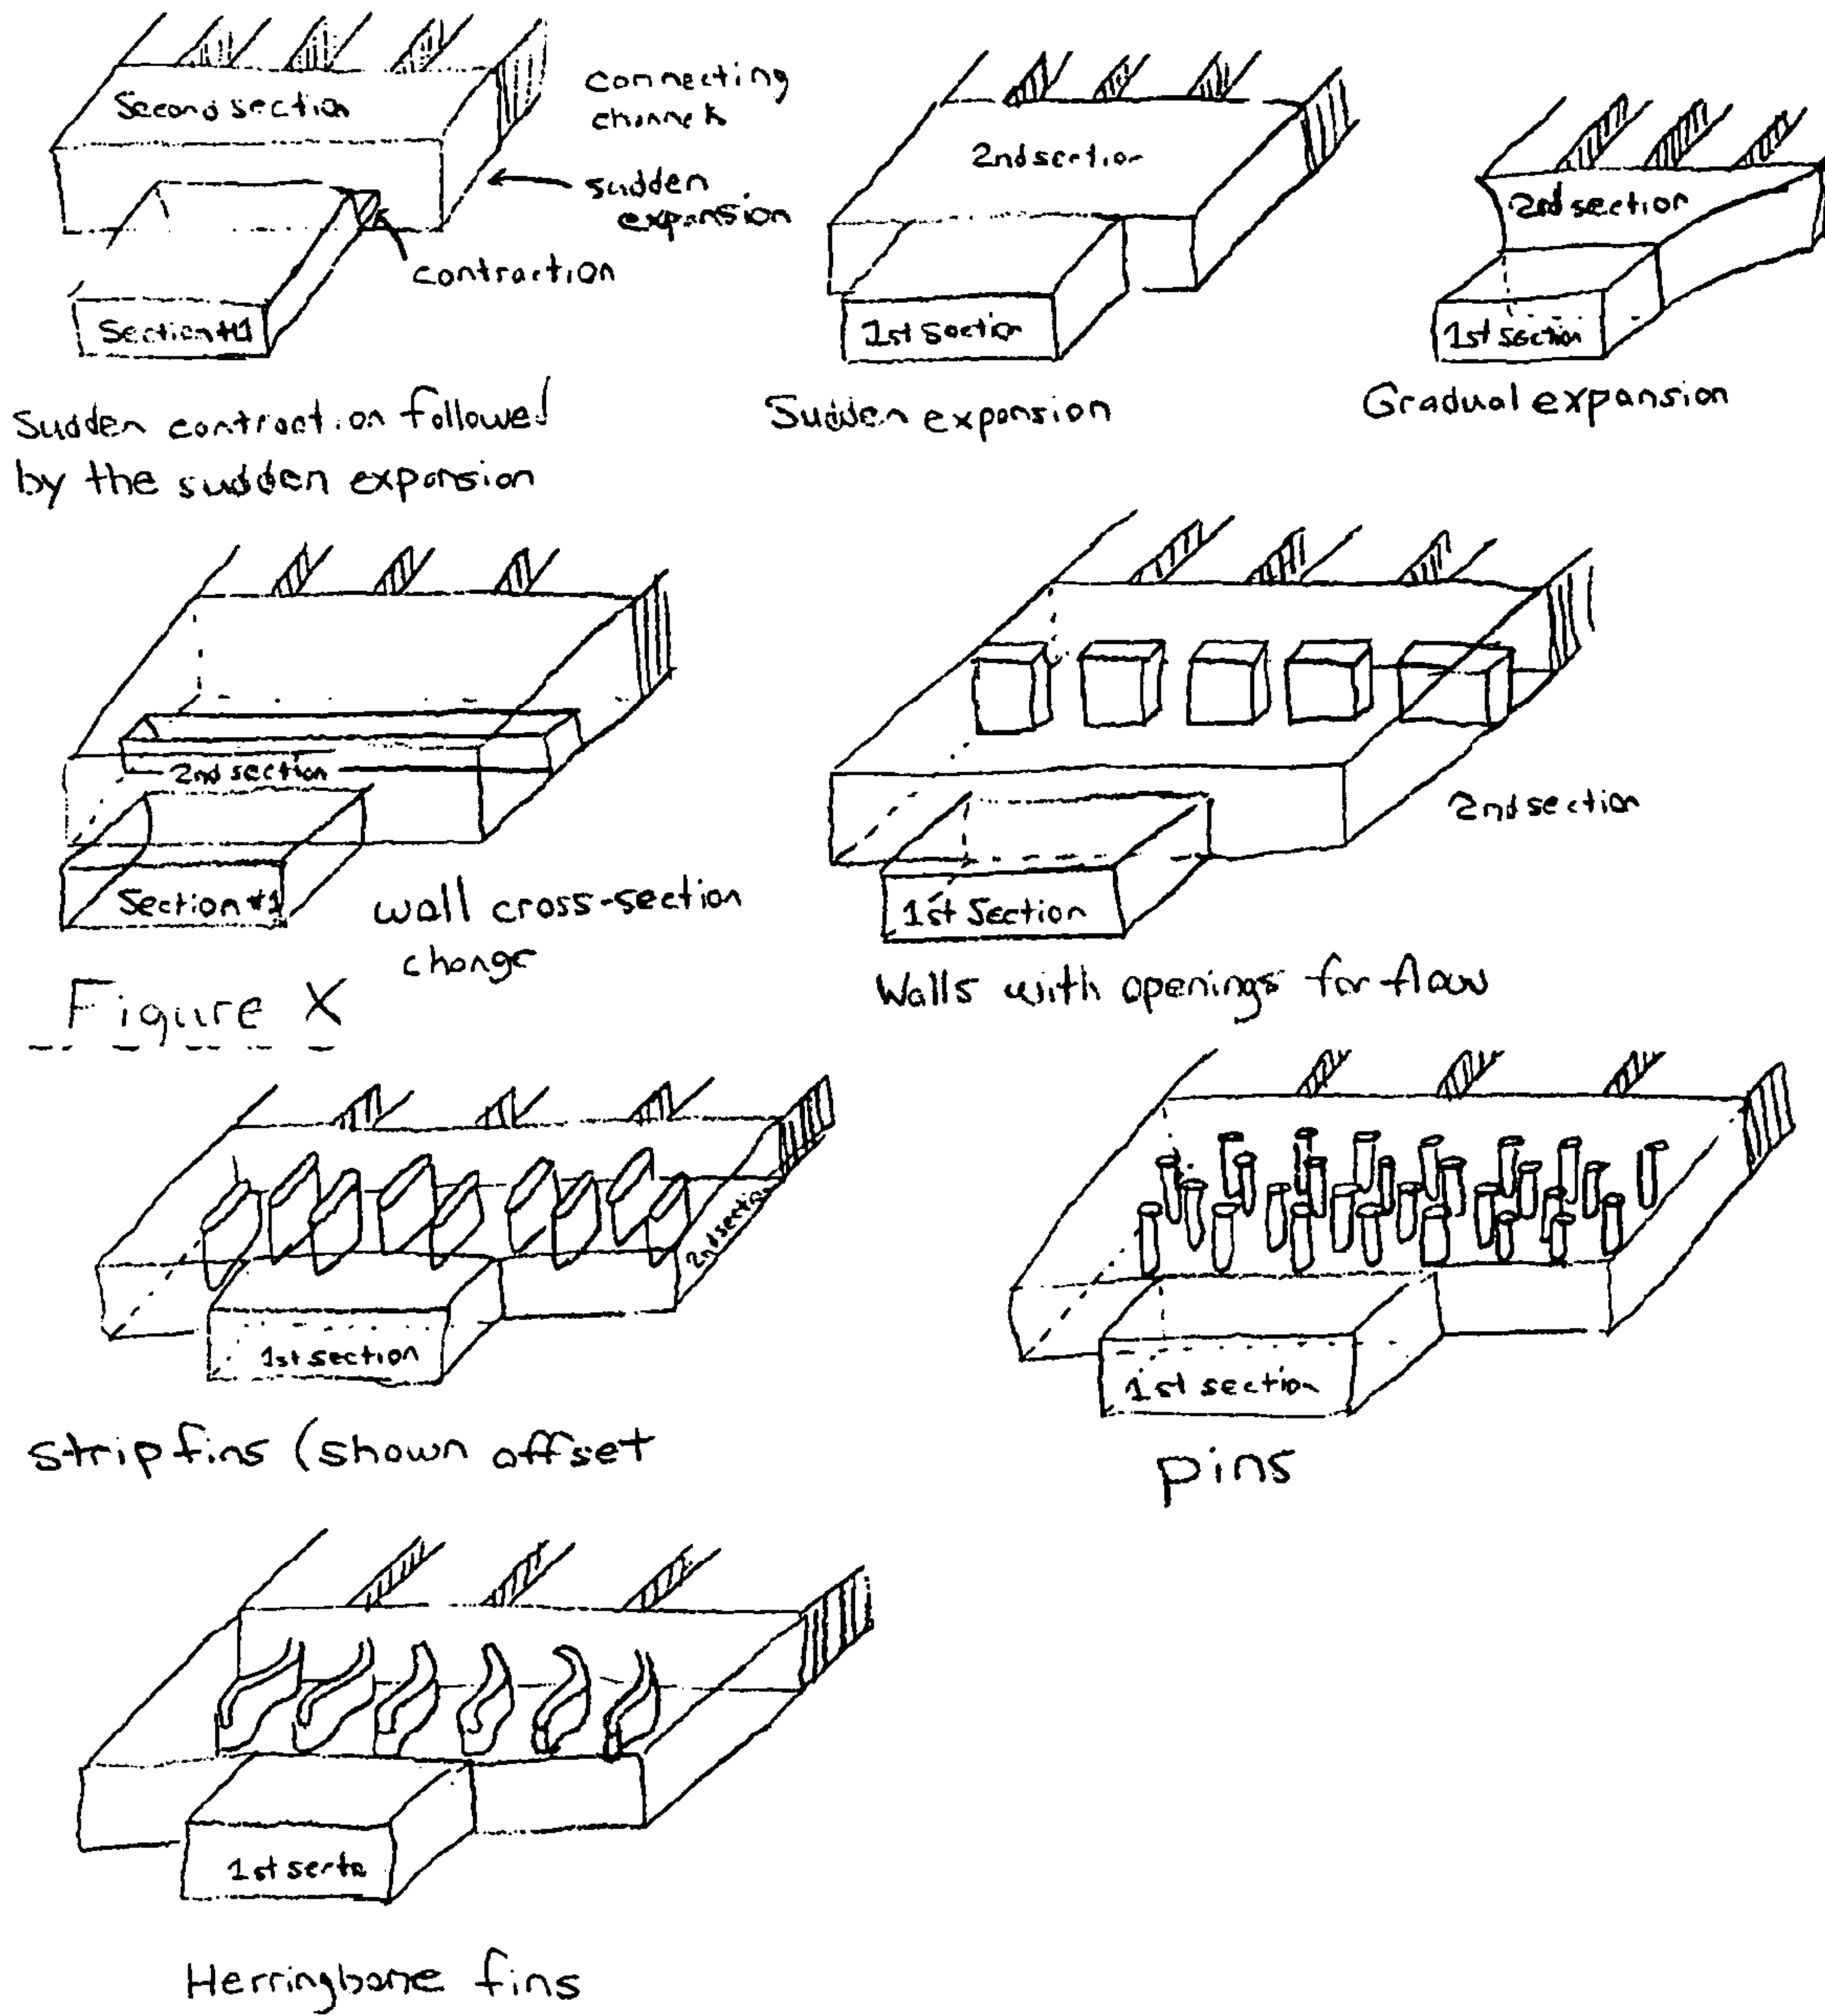 Second section
connecting
channels
sudden
expansion
contraction
Section #1
Sudden contraction followed
by the sudden expansion
2nd section
1st Section
Sudden expansion
2nd section
1st section
Gradual expansion
2nd section
Section #1
wall cross-section
change
Figure X
2nd section
1st Section
Walls with openings for flow
2nd section
1st section
strip fins (shown offset
1st section
pins
1st
Herringbone fins